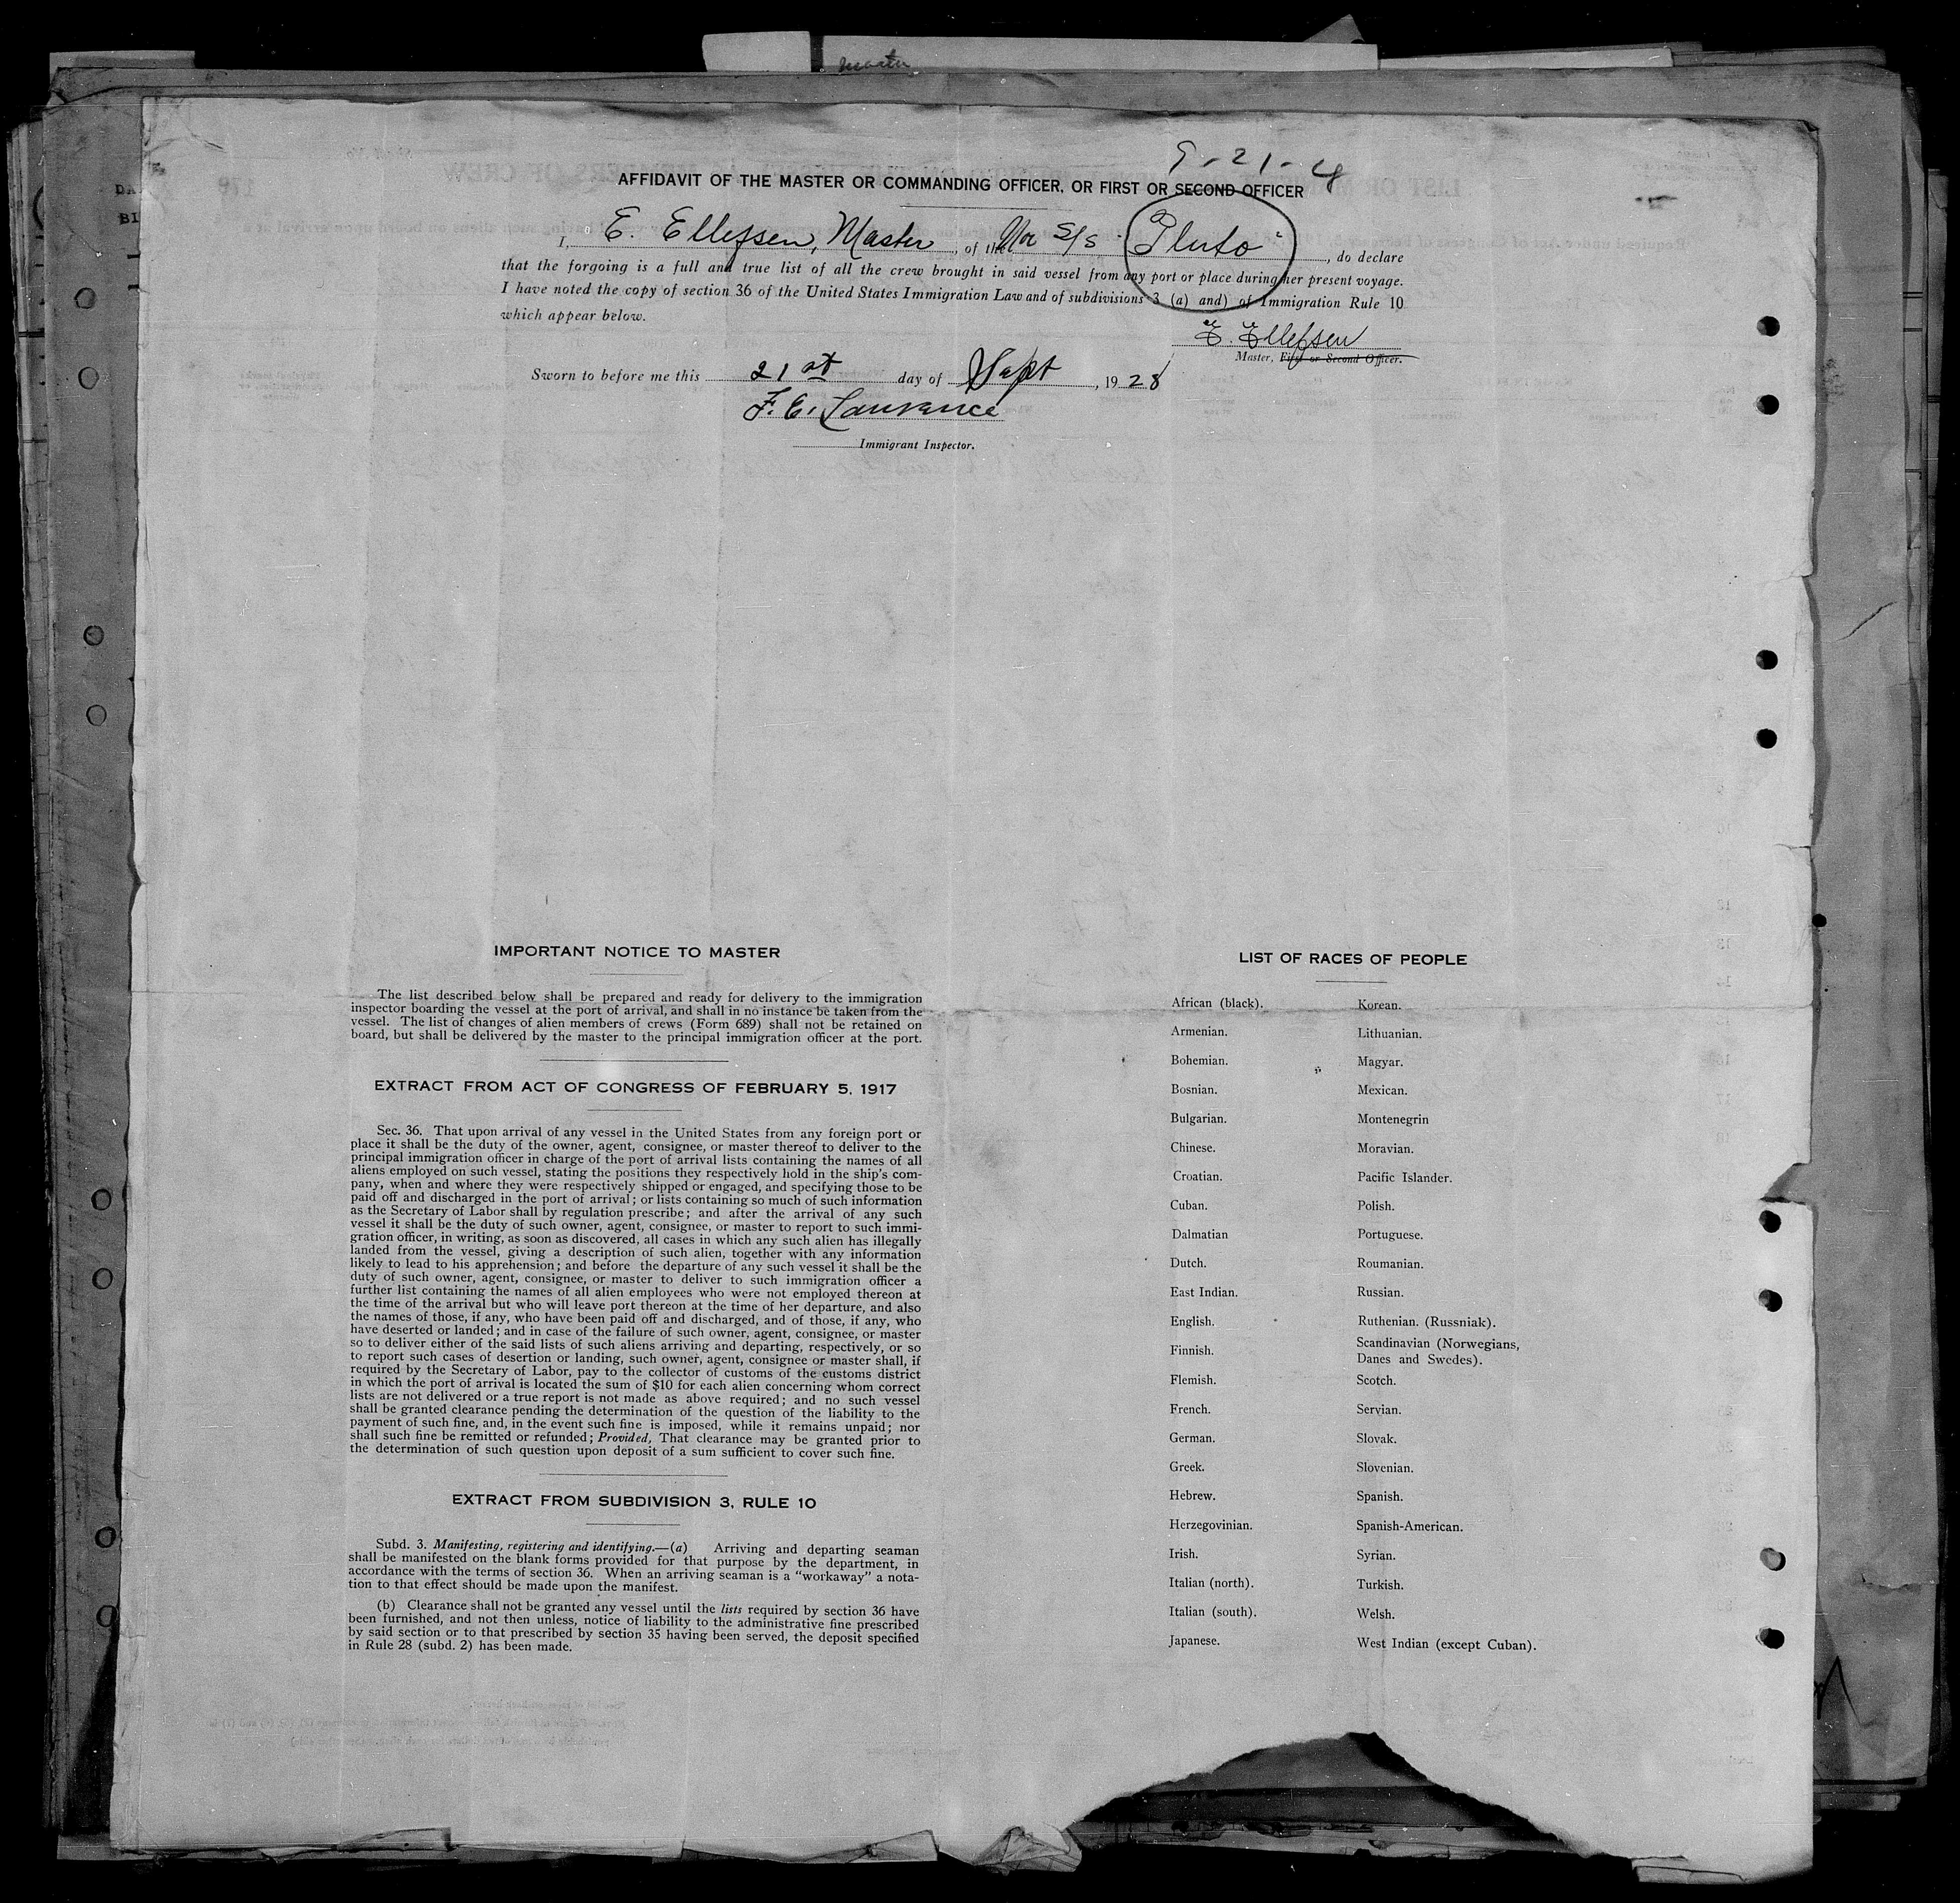 9-21-4
AFFIDAVIT OF THE MASTER OR COMMANDING OFFICER, OR FIRST OR SECOND OFFICER
I, E. Ellefsen, Master, of the Nor S/S "Pluto", do declare
that the forgoing is a full and true list of all the crew brought in said vessel from any port or place during her present voyage.
I have noted the copy of section 36 of the United States Immigration Law and of subdivisions 3 (a) and) of Immigration Rule 10
which appear below.
E. Ellefsen
Master, First or Second Officer.
Sworn to before me this 21st day of Sept, 1928
F. E. Laurance
Immigrant Inspector.
IMPORTANT NOTICE TO MASTER
The list described below shall be prepared and ready for delivery to the immigration
inspector boarding the vessel at the port of arrival, and shall in no instance be taken from the
vessel. The list of changes of alien members of crews (Form 689) shall not be retained on
board, but shall be delivered by the master to the principal immigration officer at the port.
EXTRACT FROM ACT OF CONGRESS OF FEBRUARY 5, 1917
Sec. 36. That upon arrival of any vessel in the United States from any foreign port or
place it shall be the duty of the owner, agent, consignee, or master thereof to deliver to the
principal immigration officer in charge of the port of arrival lists containing the names of all
aliens employed on such vessel, stating the positions they respectively hold in the ship's com-
pany, when and where they were respectively shipped or engaged, and specifying those to be
paid off and discharged in the port of arrival; or lists containing so much of such information
as the Secretary of Labor shall by regulation prescribe; and after the arrival of any such
vessel it shall be the duty of such owner, agent, consignee, or master to report to such immi-
gration officer, in writing, as soon as discovered, all cases in which any such alien has illegally
landed from the vessel, giving a description of such alien, together with any information
likely to lead to his apprehension; and before the departure of any such vessel it shall be the
duty of such owner, agent, consignee, or master to deliver to such immigration officer a
further list containing the names of all alien employees who were not employed thereon at
the time of the arrival but who will leave port thereon at the time of her departure, and also
the names of those, if any, who have been paid off and discharged, and of those, if any, who
have deserted or landed; and in case of the failure of such owner, agent, consignee, or master
so to deliver either of the said lists of such aliens arriving and departing, respectively, or so
to report such cases of desertion or landing, such owner, agent, consignee or master shall, if
required by the Secretary of Labor, pay to the collector of customs of the customs district
in which the port of arrival is located the sum of $10 for each alien concerning whom correct
lists are not delivered or a true report is not made as above required; and no such vessel
shall be granted clearance pending the determination of the question of the liability to the
payment of such fine, and, in the event such fine is imposed, while it remains unpaid; nor
shall such fine be remitted or refunded; Provided, That clearance may be granted prior to
the determination of such question upon deposit of a sum sufficient to cover such fine.
EXTRACT FROM SUBDIVISION 3, RULE 10
Subd. 3. Manifesting, registering and identifying.—(a) Arriving and departing seaman
shall be manifested on the blank forms provided for that purpose by the department, in
accordance with the terms of section 36. When an arriving seaman is a "workaway" a nota-
tion to that effect should be made upon the manifest.
(b) Clearance shall not be granted any vessel until the lists required by section 36 have
been furnished, and not then unless, notice of liability to the administrative fine prescribed
by said section or to that prescribed by section 35 having been served, the deposit specified
in Rule 28 (subd. 2) has been made.
LIST OF RACES OF PEOPLE
African (black).
Armenian.
Bohemian.
Bosnian.
Bulgarian.
Chinese.
Croatian.
Cuban.
Dalmatian
Dutch.
East Indian.
English.
Finnish.
Flemish.
French.
German.
Greek.
Hebrew.
Herzegovinian.
Irish.
Italian (north).
Italian (south).
Japanese.
Korean.
Lithuanian.
Magyar.
Mexican.
Montenegrin
Moravian.
Pacific Islander.
Polish.
Portuguese.
Roumanian.
Russian.
Ruthenian. (Russniak).
Scandinavian (Norwegians,
Danes and Swedes).
Scotch.
Servian.
Slovak.
Slovenian.
Spanish.
Spanish-American.
Syrian.
Turkish.
Welsh.
West Indian (except Cuban).